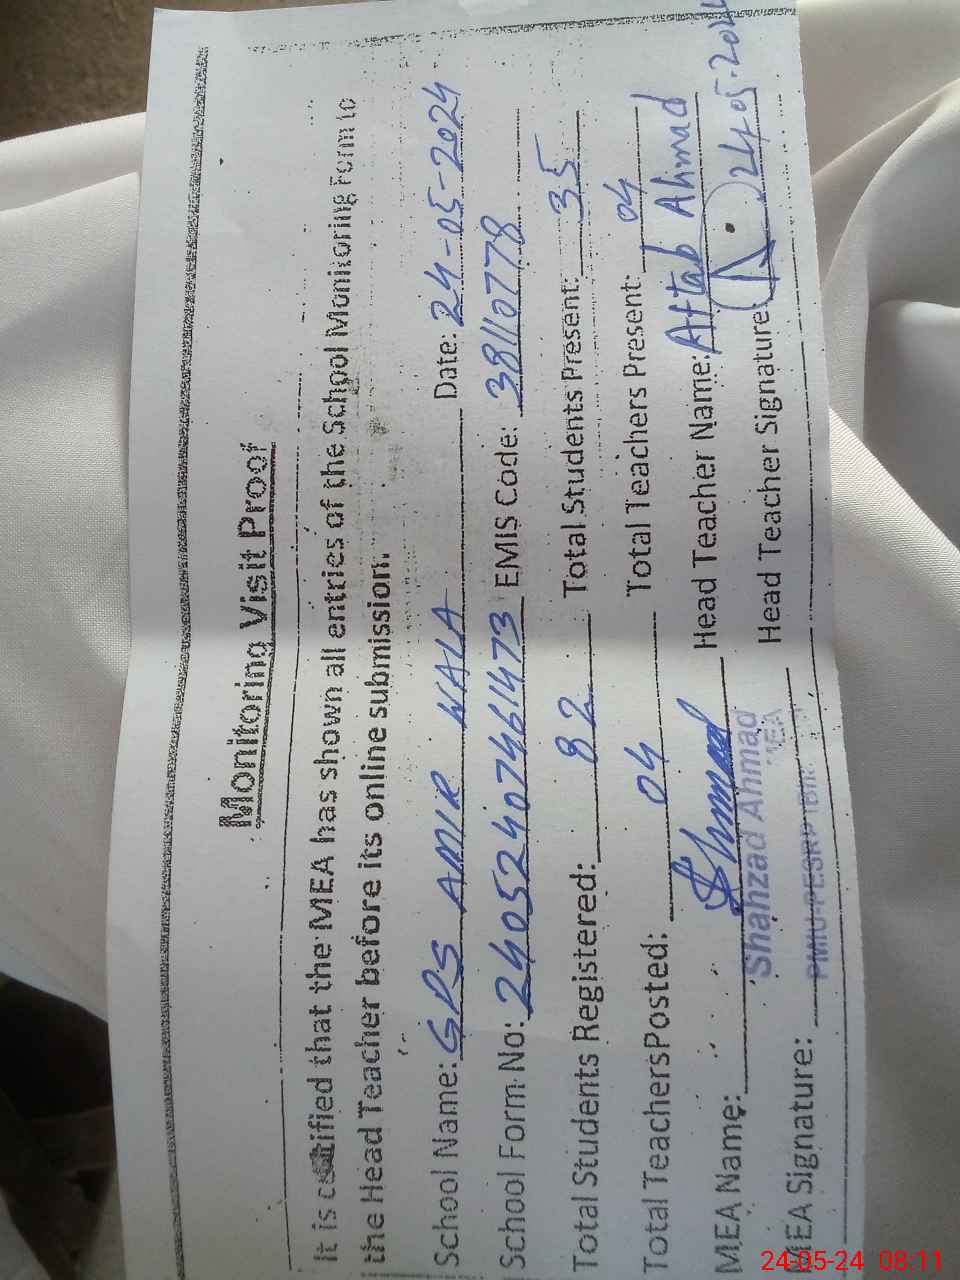 Monitoring Visit Proof
It is certified that the MEA has shown all entries of the School Monitoring Form to
the Head Teacher before its online submission.
School Name: GPS AMIR WALA Date: 24-05-2024
School Form No: 24052407461473 EMIS Code: 38110778
Total Students Registered: 82 Total Students Present: 35
Total TeachersPosted: 04 Total Teachers Present: 04
MEA Name: Head Teacher Name: Aftab Ahmad
Shahzad Ahmad
MEA
MEA Signature: Head Teacher Signature: 24.05.2024
PMIU-PESRP
24-05-24 08:11